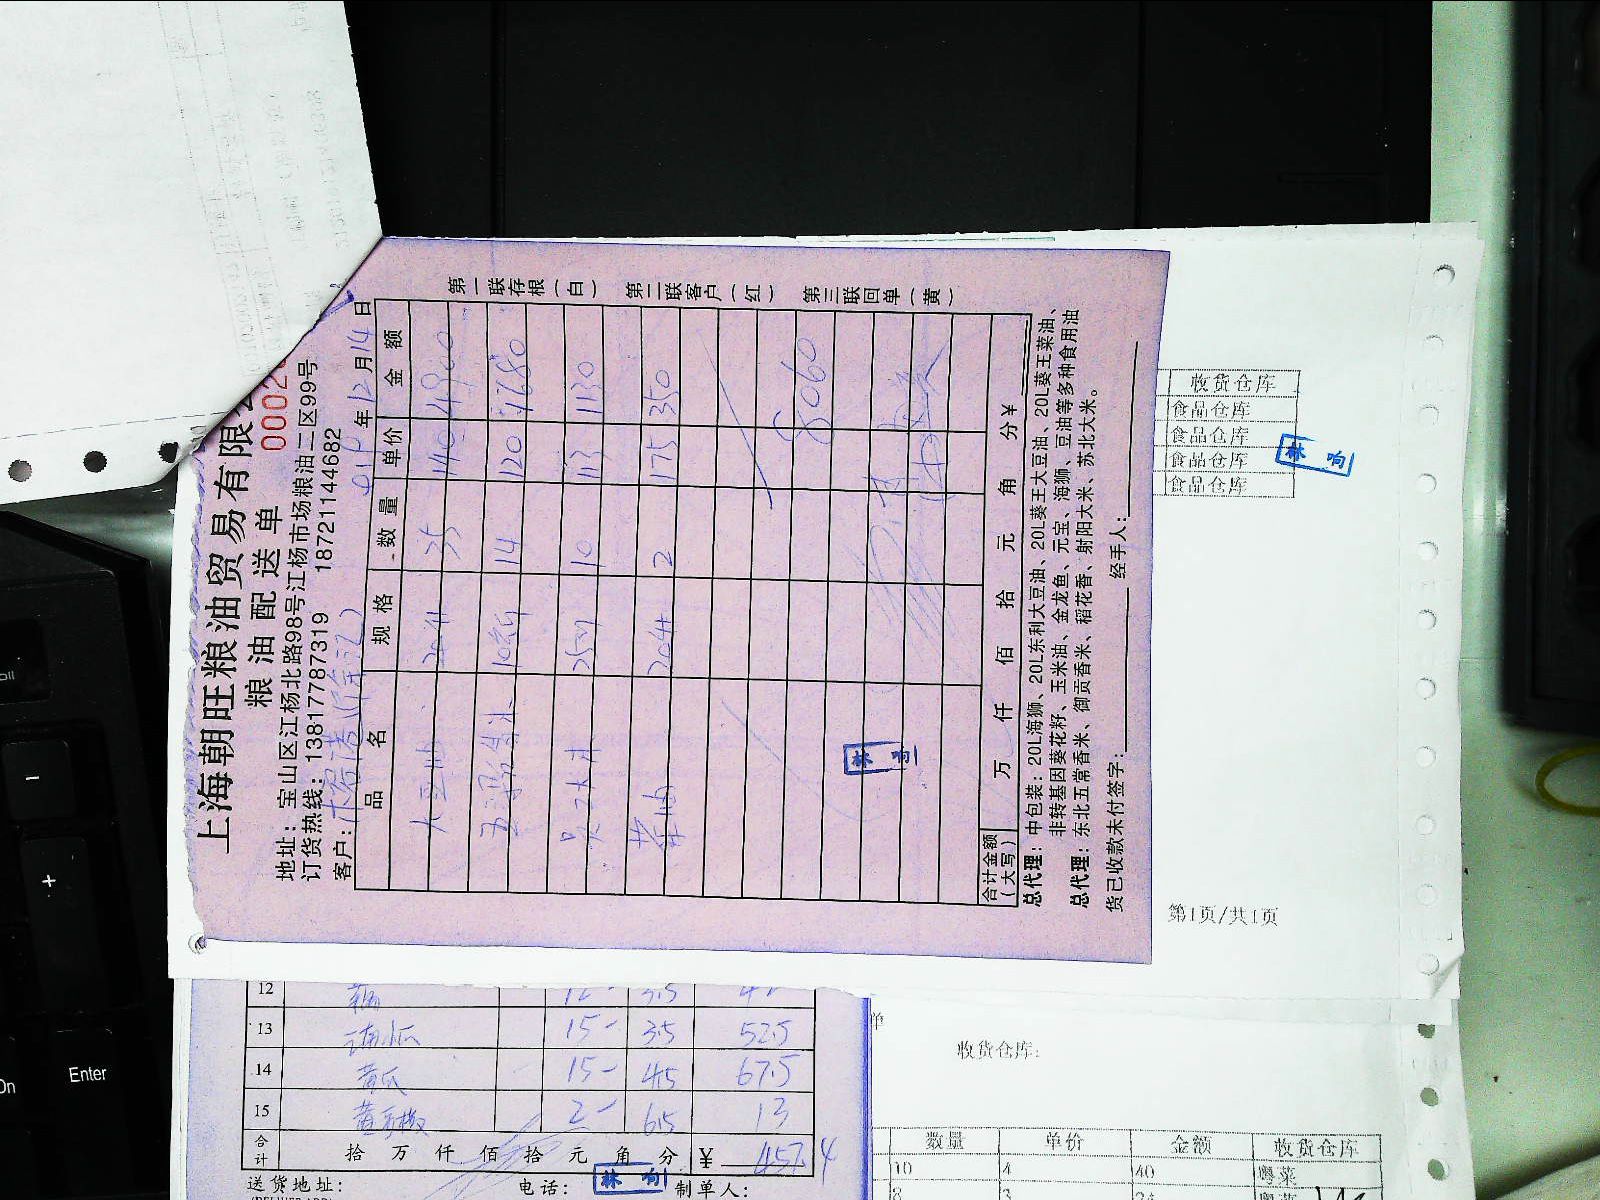 上海朝旺粮油贸易有限
粮油配送单
0002
地址：宝山区江杨北路98号江杨市场粮油二区99号
订货热线：13817787319 18721144682
客户：
年12月14日
品名 规格 数量 单价 金额
大豆油 20升 35 140 4900
14 120 1680
大米 25 10 113 1130
菜油 20升 2 175 350
8060
林响
合计金额（大写） 万 仟 佰 拾 元 角 分 ¥
总代理：中包装：20L海狮、20L东利大豆油、20L葵王大豆油、20L葵王菜油、
非转基因葵花籽、玉米油、金龙鱼、元宝、海狮、豆油等多种食用油
总代理：东北五常香米、御贡香米、稻花香、射阳大米、苏北大米。
货已收款未付签字： 经手人：
第一联存根（白） 第二联客户（红） 第三联回单（黄）
收货仓库
食品仓库
食品仓库
食品仓库
食品仓库
林响
第1页/共1页
12 3.5
13 南瓜 15 3.5 52.5
14 黄瓜 15 4.5 67.5
15 2 6.5 13
合计 拾 万 仟 佰 拾 元 角 分 ¥ 457.4
送货地址： 电话： 林响 制单人：
单
收货仓库：
数量 单价 金额 收货仓库
10 4 40 粤菜
8 3 24 粤菜
Enter